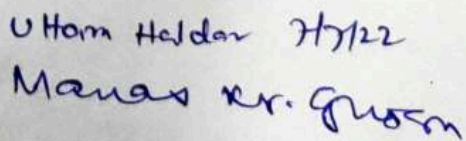 Uttam Haldar 7/7/22
Manas Kr. Ghosh